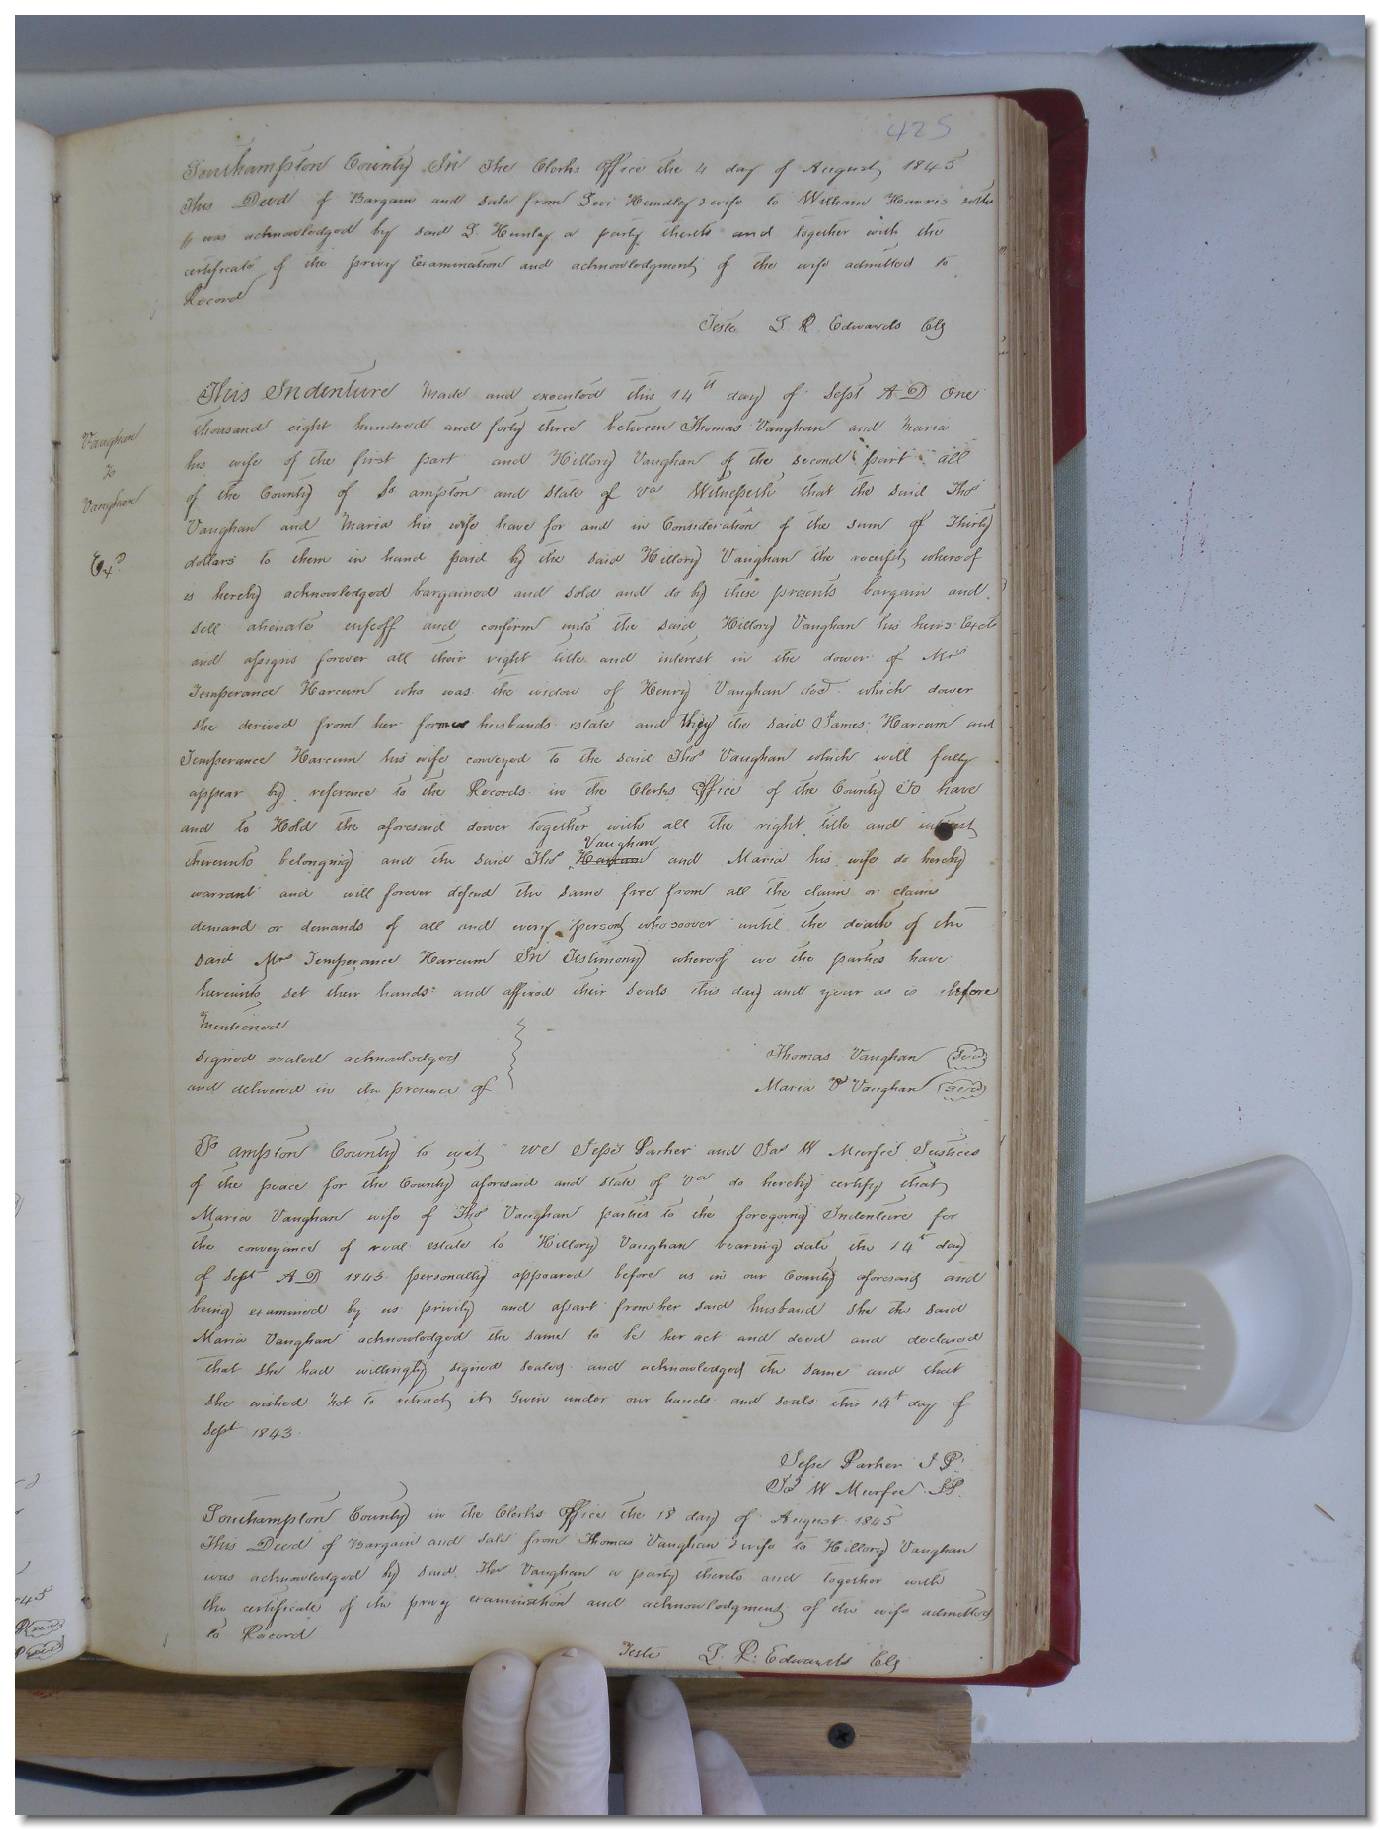 425
Southampton County In the Clerks Office the 4 day of August 1845
This Deed of Bargain and Sale from Levi Hundley & wife to William Harris
was acknowledged by said L. Hunly a party thereto and together with the
certificate of the privy Examination and acknowledgment of the wife admitted to
Record
Teste L R Edwards Clk
This Indenture made and executed this 14th day of Sept A D One
thousand eight hundred and forty three between Thomas Vaughan and Maria
his wife of the first part and Hillory Vaughan of the second part all
of the County of So ampton and State of Va Witnesseth that the said Thos
Vaughan
to
Vaughan
Exd
Vaughan and Maria his wife have for and in Consideration of the sum of Thirty
dollars to them in hand paid by the said Hillory Vaughan the receipt whereof
is hereby acknowledged bargained and sold and do by these presents bargain and
sell alienate enfeoff and confirm unto the said Hillory Vaughan his heirs Exctr
and assigns forever all their right title and interest in the dower of Mrs
Temperance Harcum who was the widow of Henry Vaughan decd which dower
she derived from her former husbands estate and they the said James Harcum and
Temperance Harcum his wife conveyed to the said Thos Vaughan which will fully
appear by reference to the Records in the Clerks Office of the County To have
and to Hold the aforesaid dower together with all the right title and interest
Vaughan
thereunto belonging and the said Thos and Maria his wife do hereby
warrant and will forever defend the same free from all the claim or claims
demand or demands of all and every person whosoever until the death of the
said Mrs Temperance Harcum In Testimony whereof we the parties have
hereunto set their hands and affixed their seals this day and year as is before
mentioned
signed sealed acknowledged
and delivered in the presence of
Thomas Vaughan Seal
Maria V Vaughan Seal
So ampton County to wit We Jesse Parker and Jas W Murfee Justices
of the peace for the County aforesaid and State of Va do hereby certify that
Maria Vaughan wife of Thos Vaughan parties to the foregoing Indenture for
the conveyance of real estate to Hillory Vaughan bearing date the 14t day
of Sept A D 1843 personally appeared before us in our County aforesaid and
being examined by us privily and apart from her said husband she the said
Maria Vaughan acknowledged the same to be her act and deed and declared
that she had willingly signed sealed and acknowledged the same and that
she wished not to retract it Given under our hands and seals this 14t day of
Sept 1843
Jesse Parker J P.
Jas W Murfee J P.
Southampton County in the Clerks Office the 18 day of August 1845
This Deed of Bargain and Sale from Thomas Vaughan & wife to Hillory Vaughan
was acknowledged by said Thos Vaughan a party thereto and together with
the certificate of the privy examination and acknowledgment of the wife admitted
to Record
Teste L. R. Edwards Clk